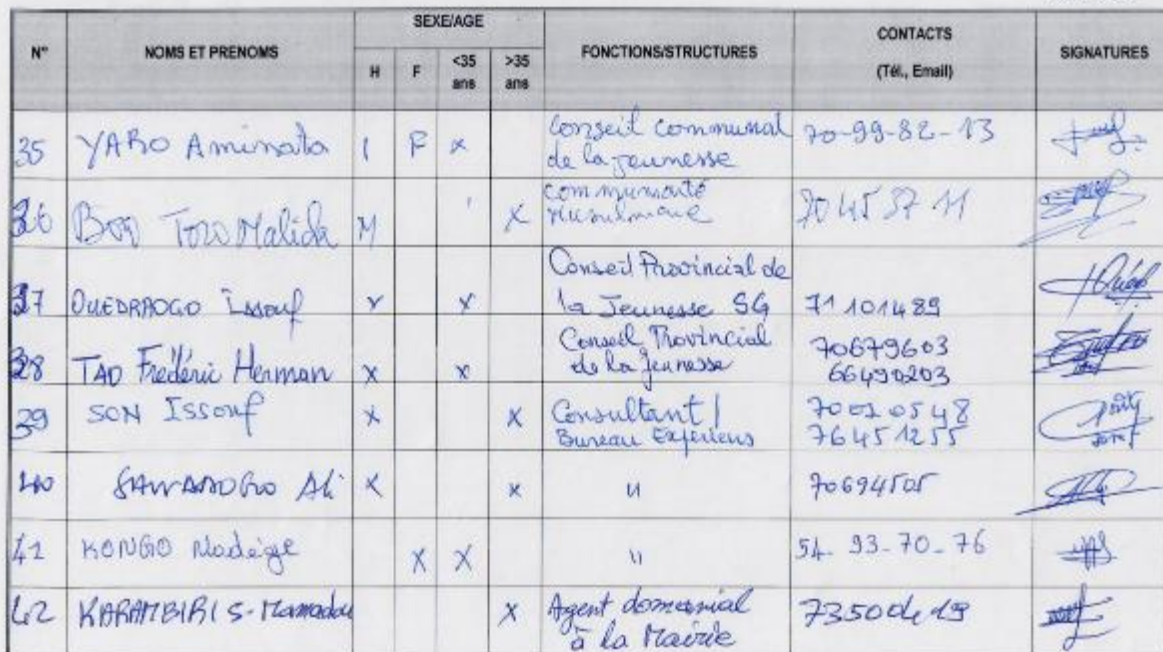 SEXE/AGE
N° NOMS ET PRENOMS H F <35 ans >35 ans FONCTIONS/STRUCTURES CONTACTS (Tél., Email) SIGNATURES
35 YARO Aminata F x Conseil communal de la jeunesse 70-99-82-13
36 Toro Malick M x communauté musulmane 70 45 37 11
37 OUEDRAOGO Issouf x x Conseil Provincial de la Jeunesse SG 71 10 14 89
38 TAO Frédéric Herman x x Conseil Provincial de la jeunesse 70679603 66490203
39 SON Issouf x x Consultant / Bureau 70020548 76451255
40 SAWADOGO Ali x x " 70694505
41 KONGO Nadège X X " 54-93-70-76
42 KARAMBIRI S-Mamadou X Agent domanial à la Mairie 73500419